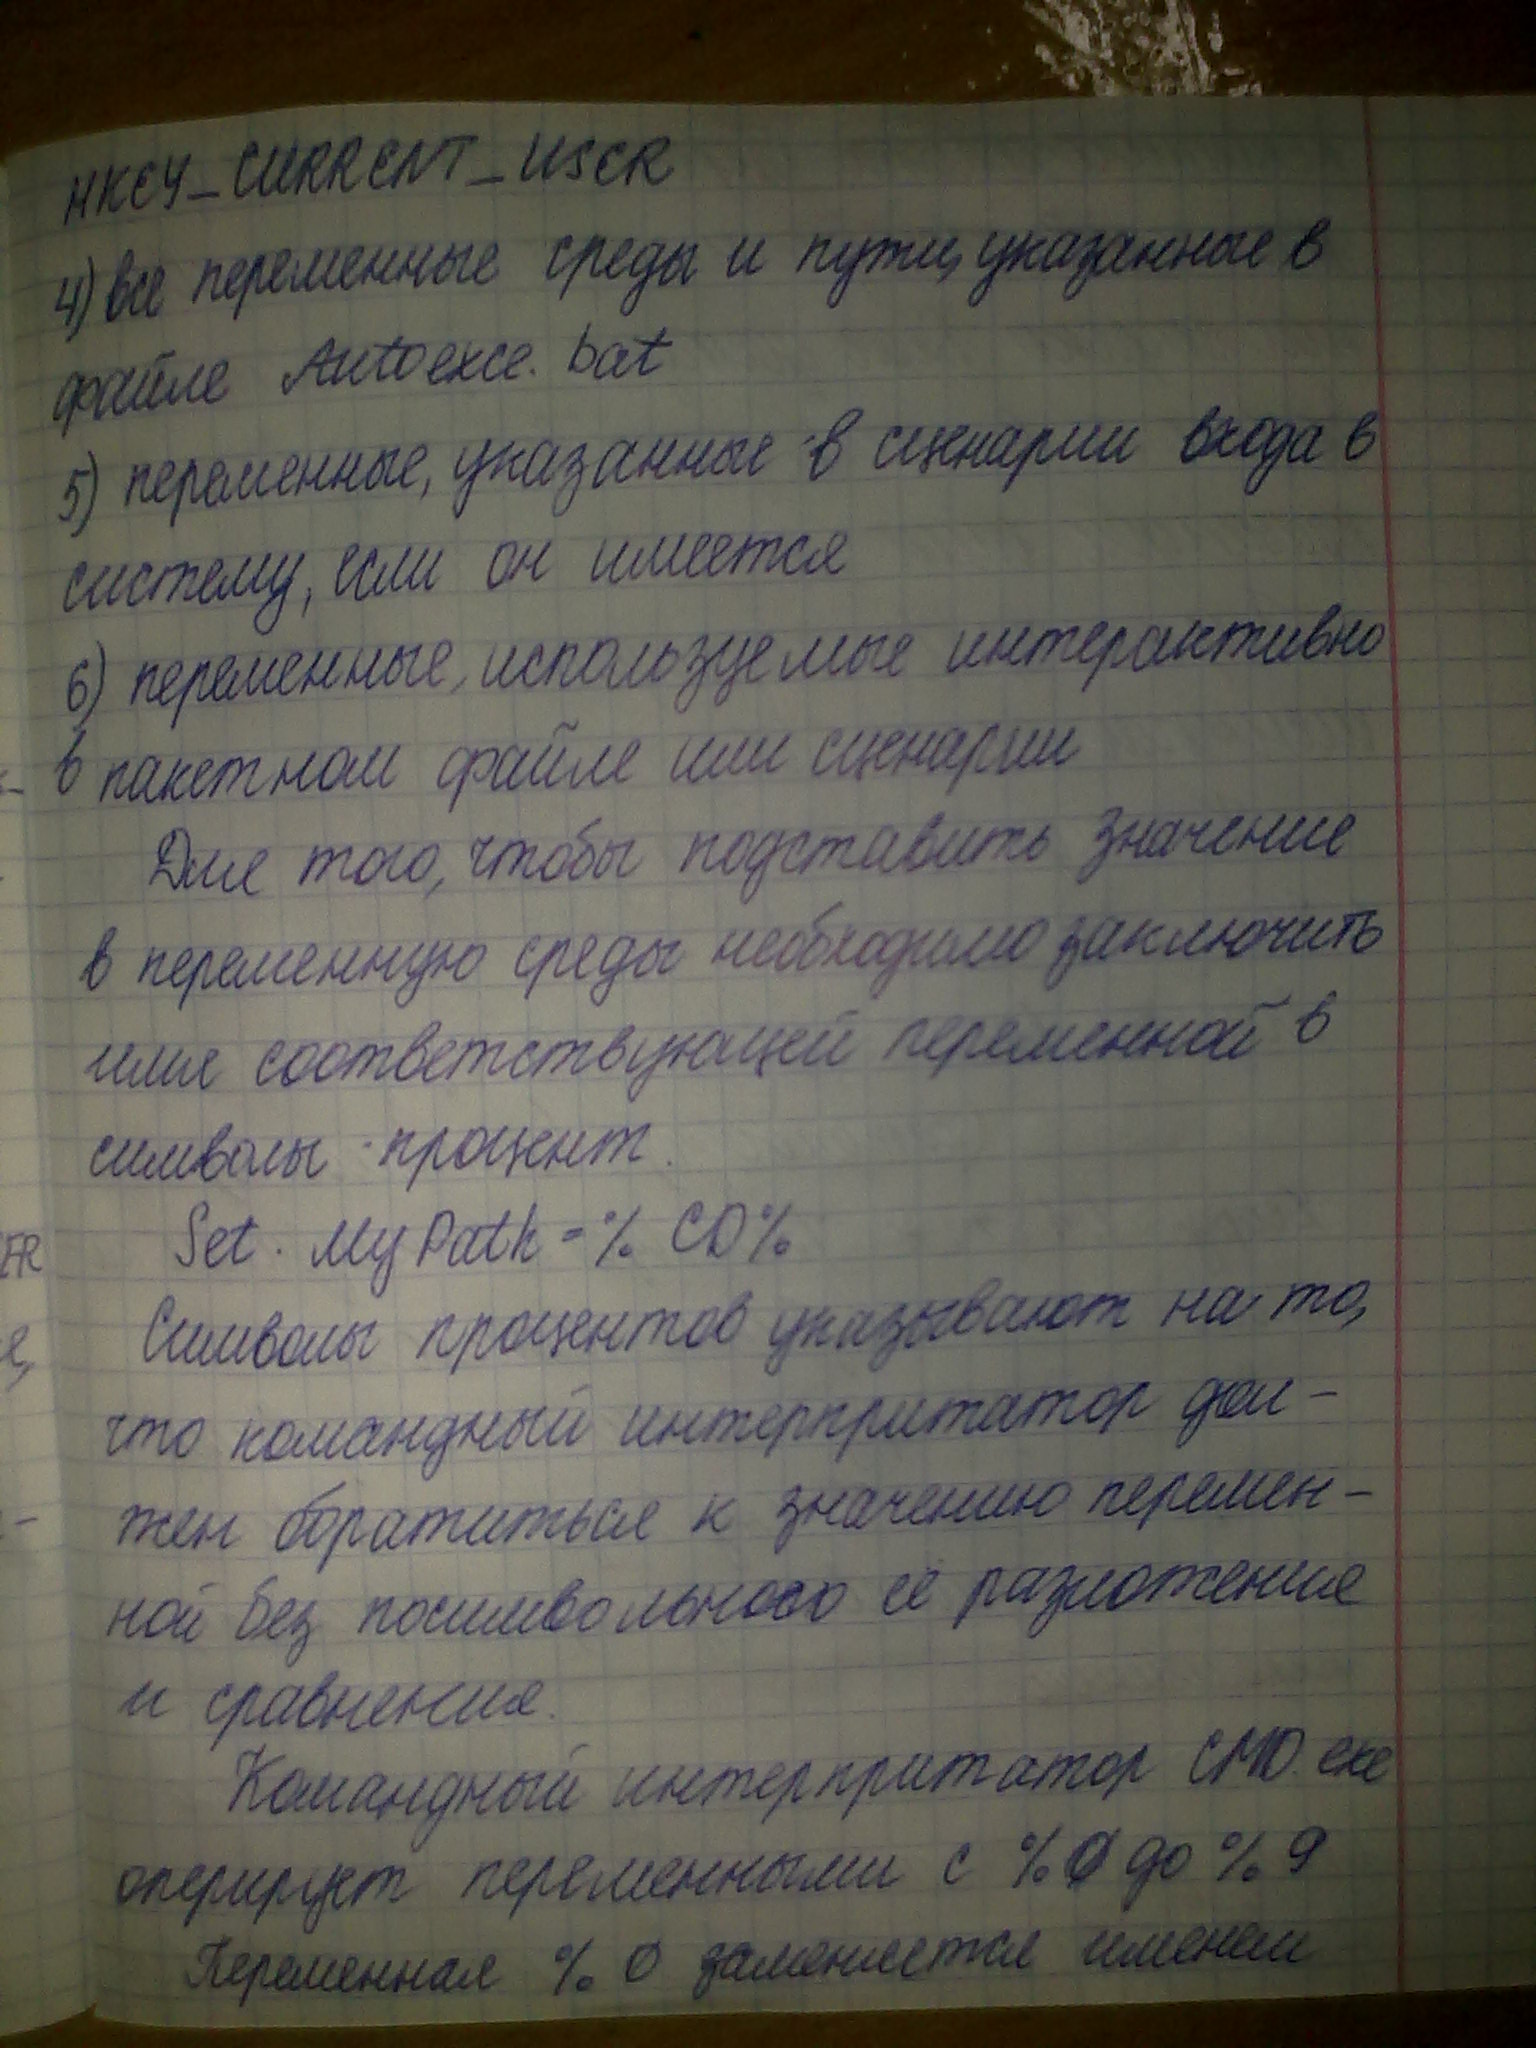 HKEY_CURRENT_USER
4) все переменные среды и пути, указанные в
файле Autoexce.bat
5) переменные, указанные в сценарии входа в
систему, если он имеется
6) переменные, используемые интерактивно
в пакетном файле или сценарии
Для того, чтобы подставить значение
в переменную среды необходимо заключить
имя соответствующей переменной в
символы процент.
Set. MyPath = % CD%
Символы процентов указывают на то,
что командный интерпритатор дол-
жен обратиться к значению перемен-
ной без посимвольного её разложения
и сравнения.
Командный интерпритатор CMD.exe
оперирует переменными с %0 до %9
Переменная %0 заменяется именем
ER
я,